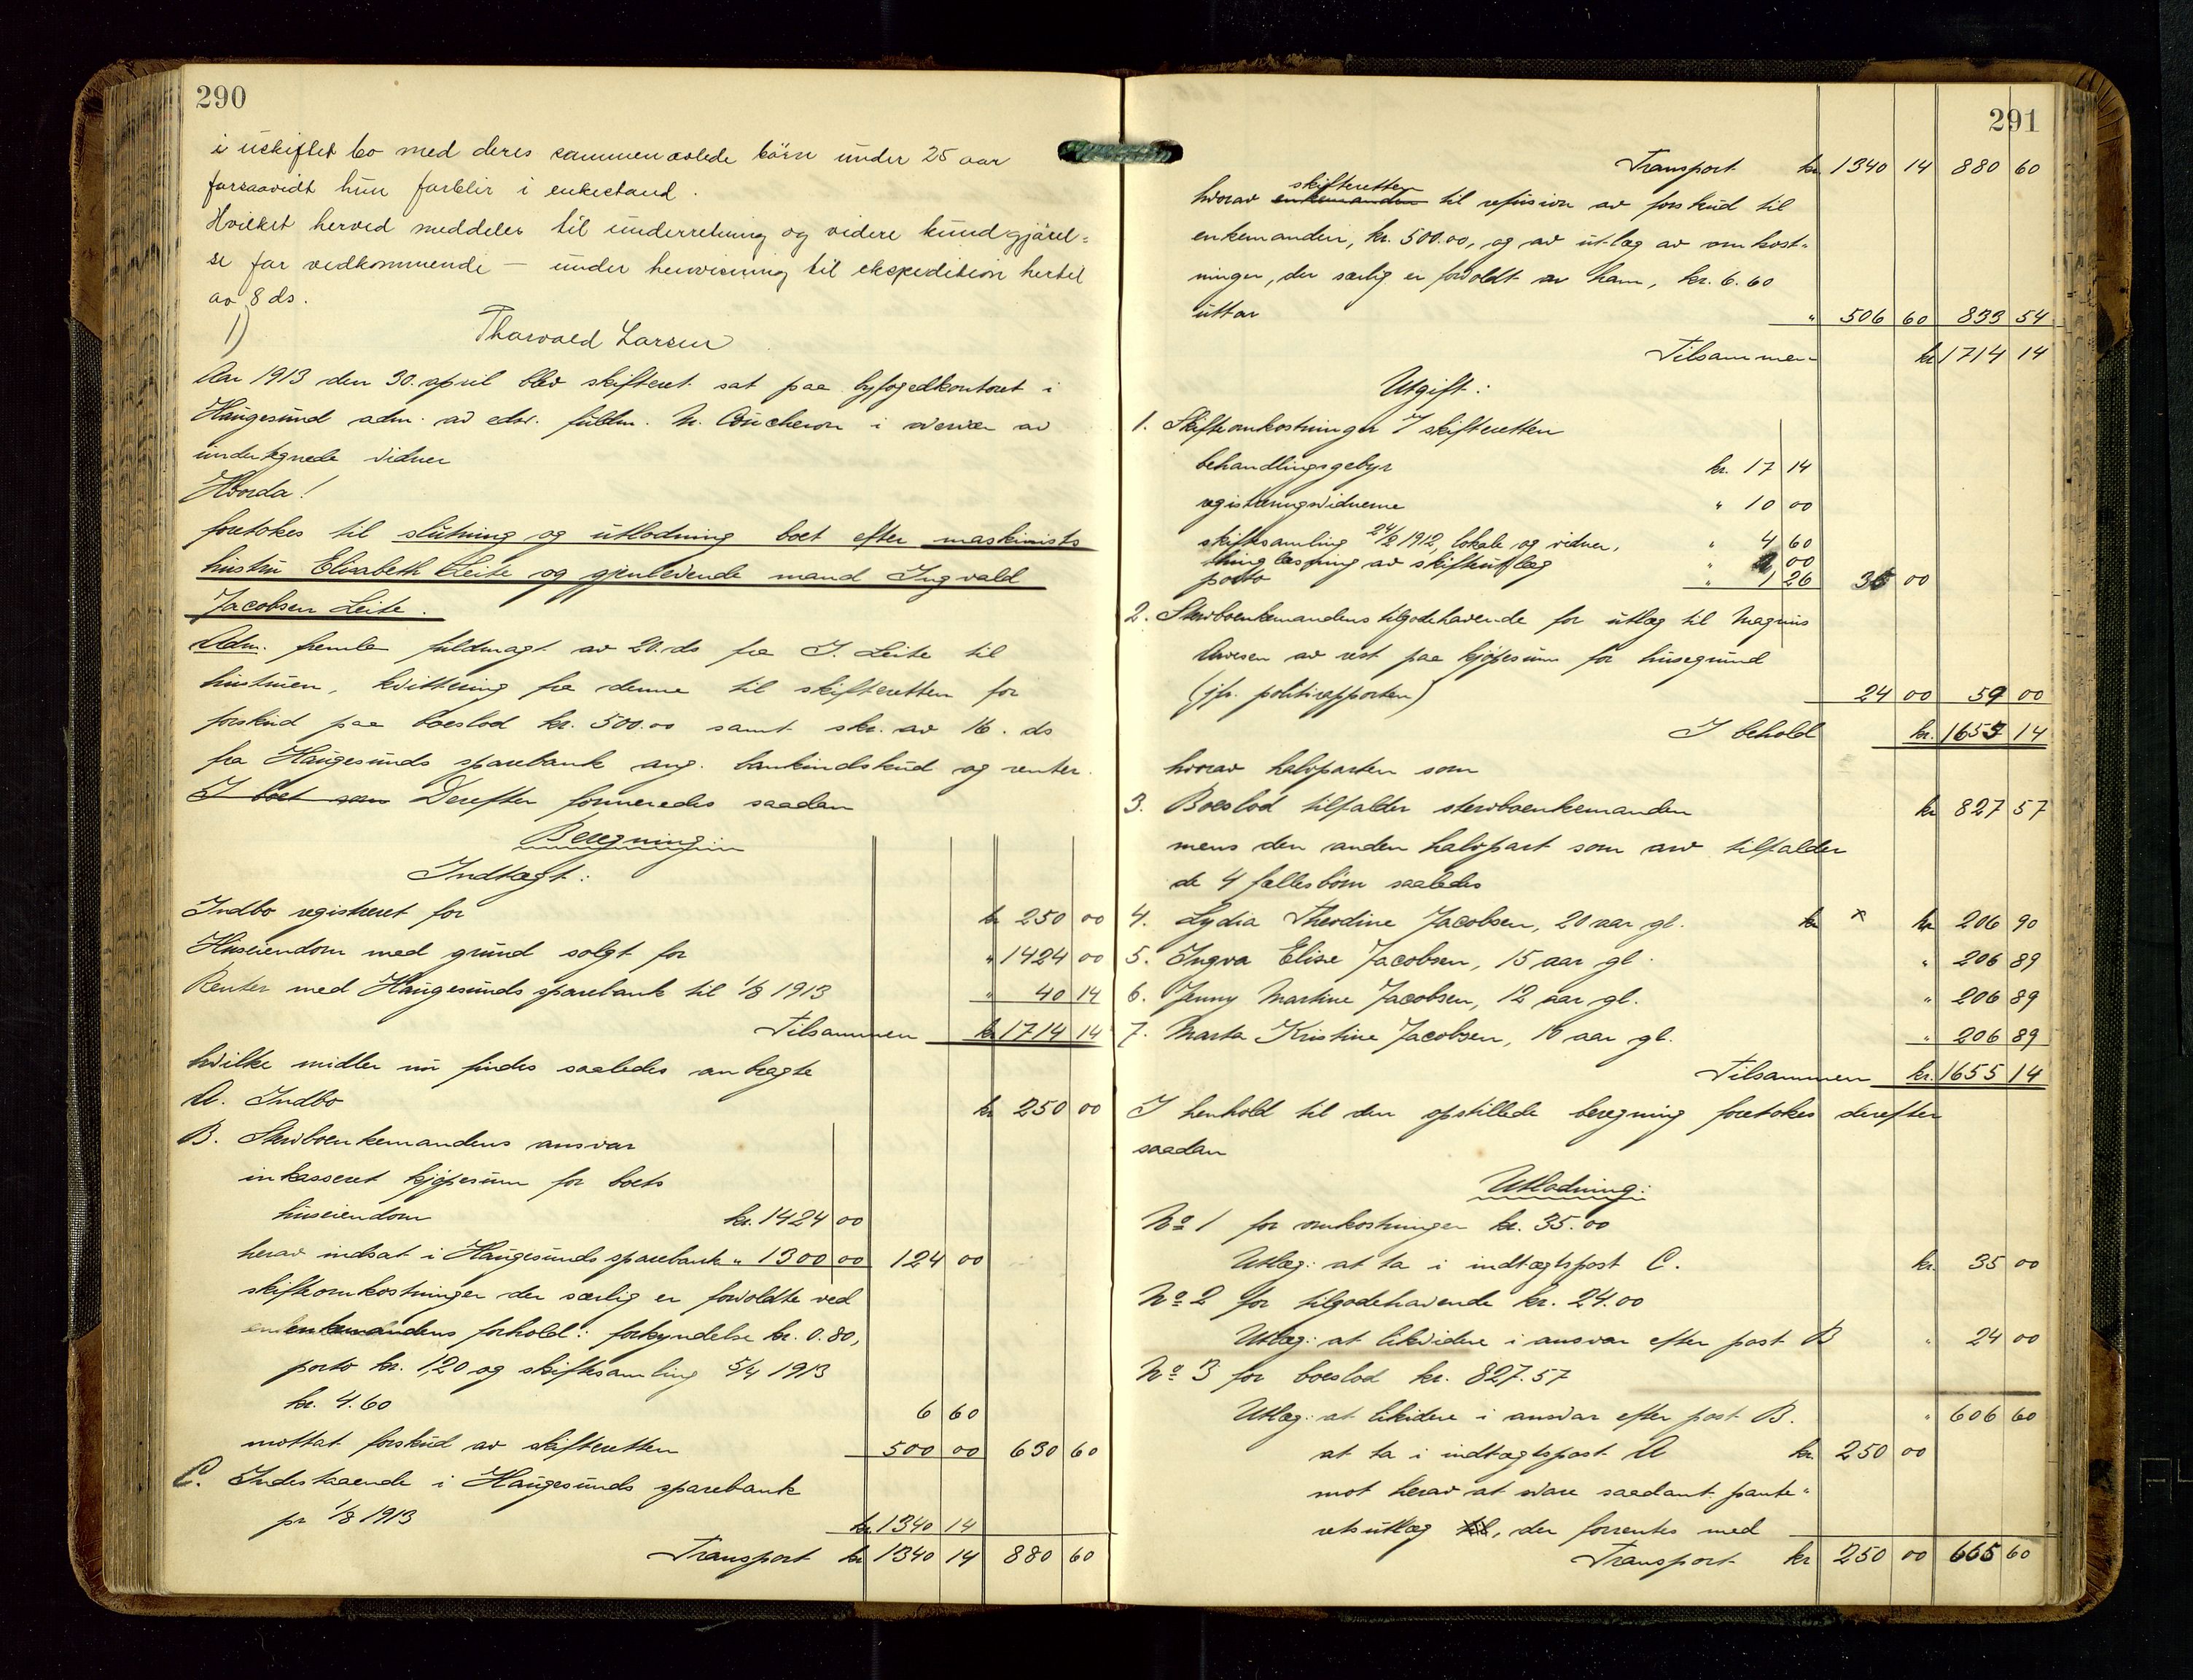 290
i uskiftet bo med deres sammenavlede börn under 25 aar
forsaavidt hun forblir i enkestand.
Hvilket herved meddeles til underretning og videre kundgjörel-
se for vedkommende — under henvisning til ekspedition hertil
av 8 ds.
1)
Thorvald Larsen
Aar 1913 den 30. april blev skifteret sat paa byfogedkontoret i
Haugesund adm. av edsv. fuldm. N. Coucheron i overvær av
undertegnede vidner
Hvorda!
foretokes til slutning og utlodning boet efter maskinists
hustru Elisabeth Leite og gjenlevende mand Ingvald
Jacobsen Leite.
Adm. fremla fuldmagt av 20. ds fra I. Leite til
hustruen, kvittering fra denne til skifteretten for
forskud paa boeslod kr. 500.00 samt skr. av 16. ds
fra Haugesunds sparebank ang. bankindskud og renter.
I boet som Derefter formeredes saadan
Beregning:
Indtægt:
Indbo registreret for kr 250 00
Huseiendom med grund solgt for " 1424 00
Renter med Haugesunds sparebank til 1/8 1913 " 40 14
Tilsammen kr 1714 14
hvilke midler nu findes saaledes anbragte
A. Indbo kr 250 00
B. Stervboenkemandens ansvar
inkasseret kjøpesum for boets
huseiendom kr. 1424 00
herav indsat i Haugesunds sparebank " 1300 00 124 00
skifteomkostninger der særlig er forvoldte ved
enkemandens forhold: forkyndelse kr. 0.80,
porto kr. 1,20 og skiftesamling 5/4 1913
kr. 4.60 6 60
mottat forskud av skifteretten 500 00 630 60
C. Indestaaende i Haugesunds sparebank
pr 1/8 1913 kr 1340 14
Transport kr 1340 14 880 60
291
Transport kr 1340 14 880 60
skifteretten
hvorav enkemanden til refusion av forskud til
enkemanden, kr. 500.00, og av utlæg av omkost-
ninger, der særlig er forvoldt av ham, kr. 6.60
uttar " 506 60 833 54
Tilsammen kr 1714 14
Utgift:
1. Skifteomkostninger I skifteretten
behandlingsgebyr kr. 17 14
registreringsvidnerne " 10 00
skiftesamling 24/2 1912, lokale og vidner, " 4 60
thinglæsning av skifteutlæg " 2 00
porto " 1 26 35 00
2. Stervboenkemandens tilgodehavende for utlæg til Magnus
av rest paa kjøpesum for husegrund
(jfr. politirapporten) 24 00 59 00
I behold kr. 1655 14
hvorav halvparten som
3. Boeslod tilfalder stervboenkemanden kr 827 57
mens den anden halvpart som arv tilfalder
de 4 fællesbörn saaledes
4. Lydia Theodine Jacobsen, 20 aar gl. kr x kr 206 90
5. Ingva Elise Jacobsen, 15 aar gl. " 206 89
6. Jenny Martine Jacobsen, 12 aar gl. " 206 89
7. Marta Kristine Jacobsen, 10 aar gl. " 206 89
Tilsammen kr. 1655 14
I henhold til den opstillede beregning foretokes derefter
saadan
Utlodning:
No 1 for omkostninger kr. 35.00
Utlæg: at ta i indtægtspost C. kr. 35 00
No 2 for tilgodehavende kr. 24.00
Utlæg: at likvidere i ansvar efter post B " 24 00
No 3 for boeslod kr. 827.57
Utlæg: at likvidere i ansvar efter post B. " 606 60
at ta i indtægtspost A kr 250 00
mot herav at svare saadant pante-
retsutlæg til, der forrentes med
Transport kr 250 00 665 60